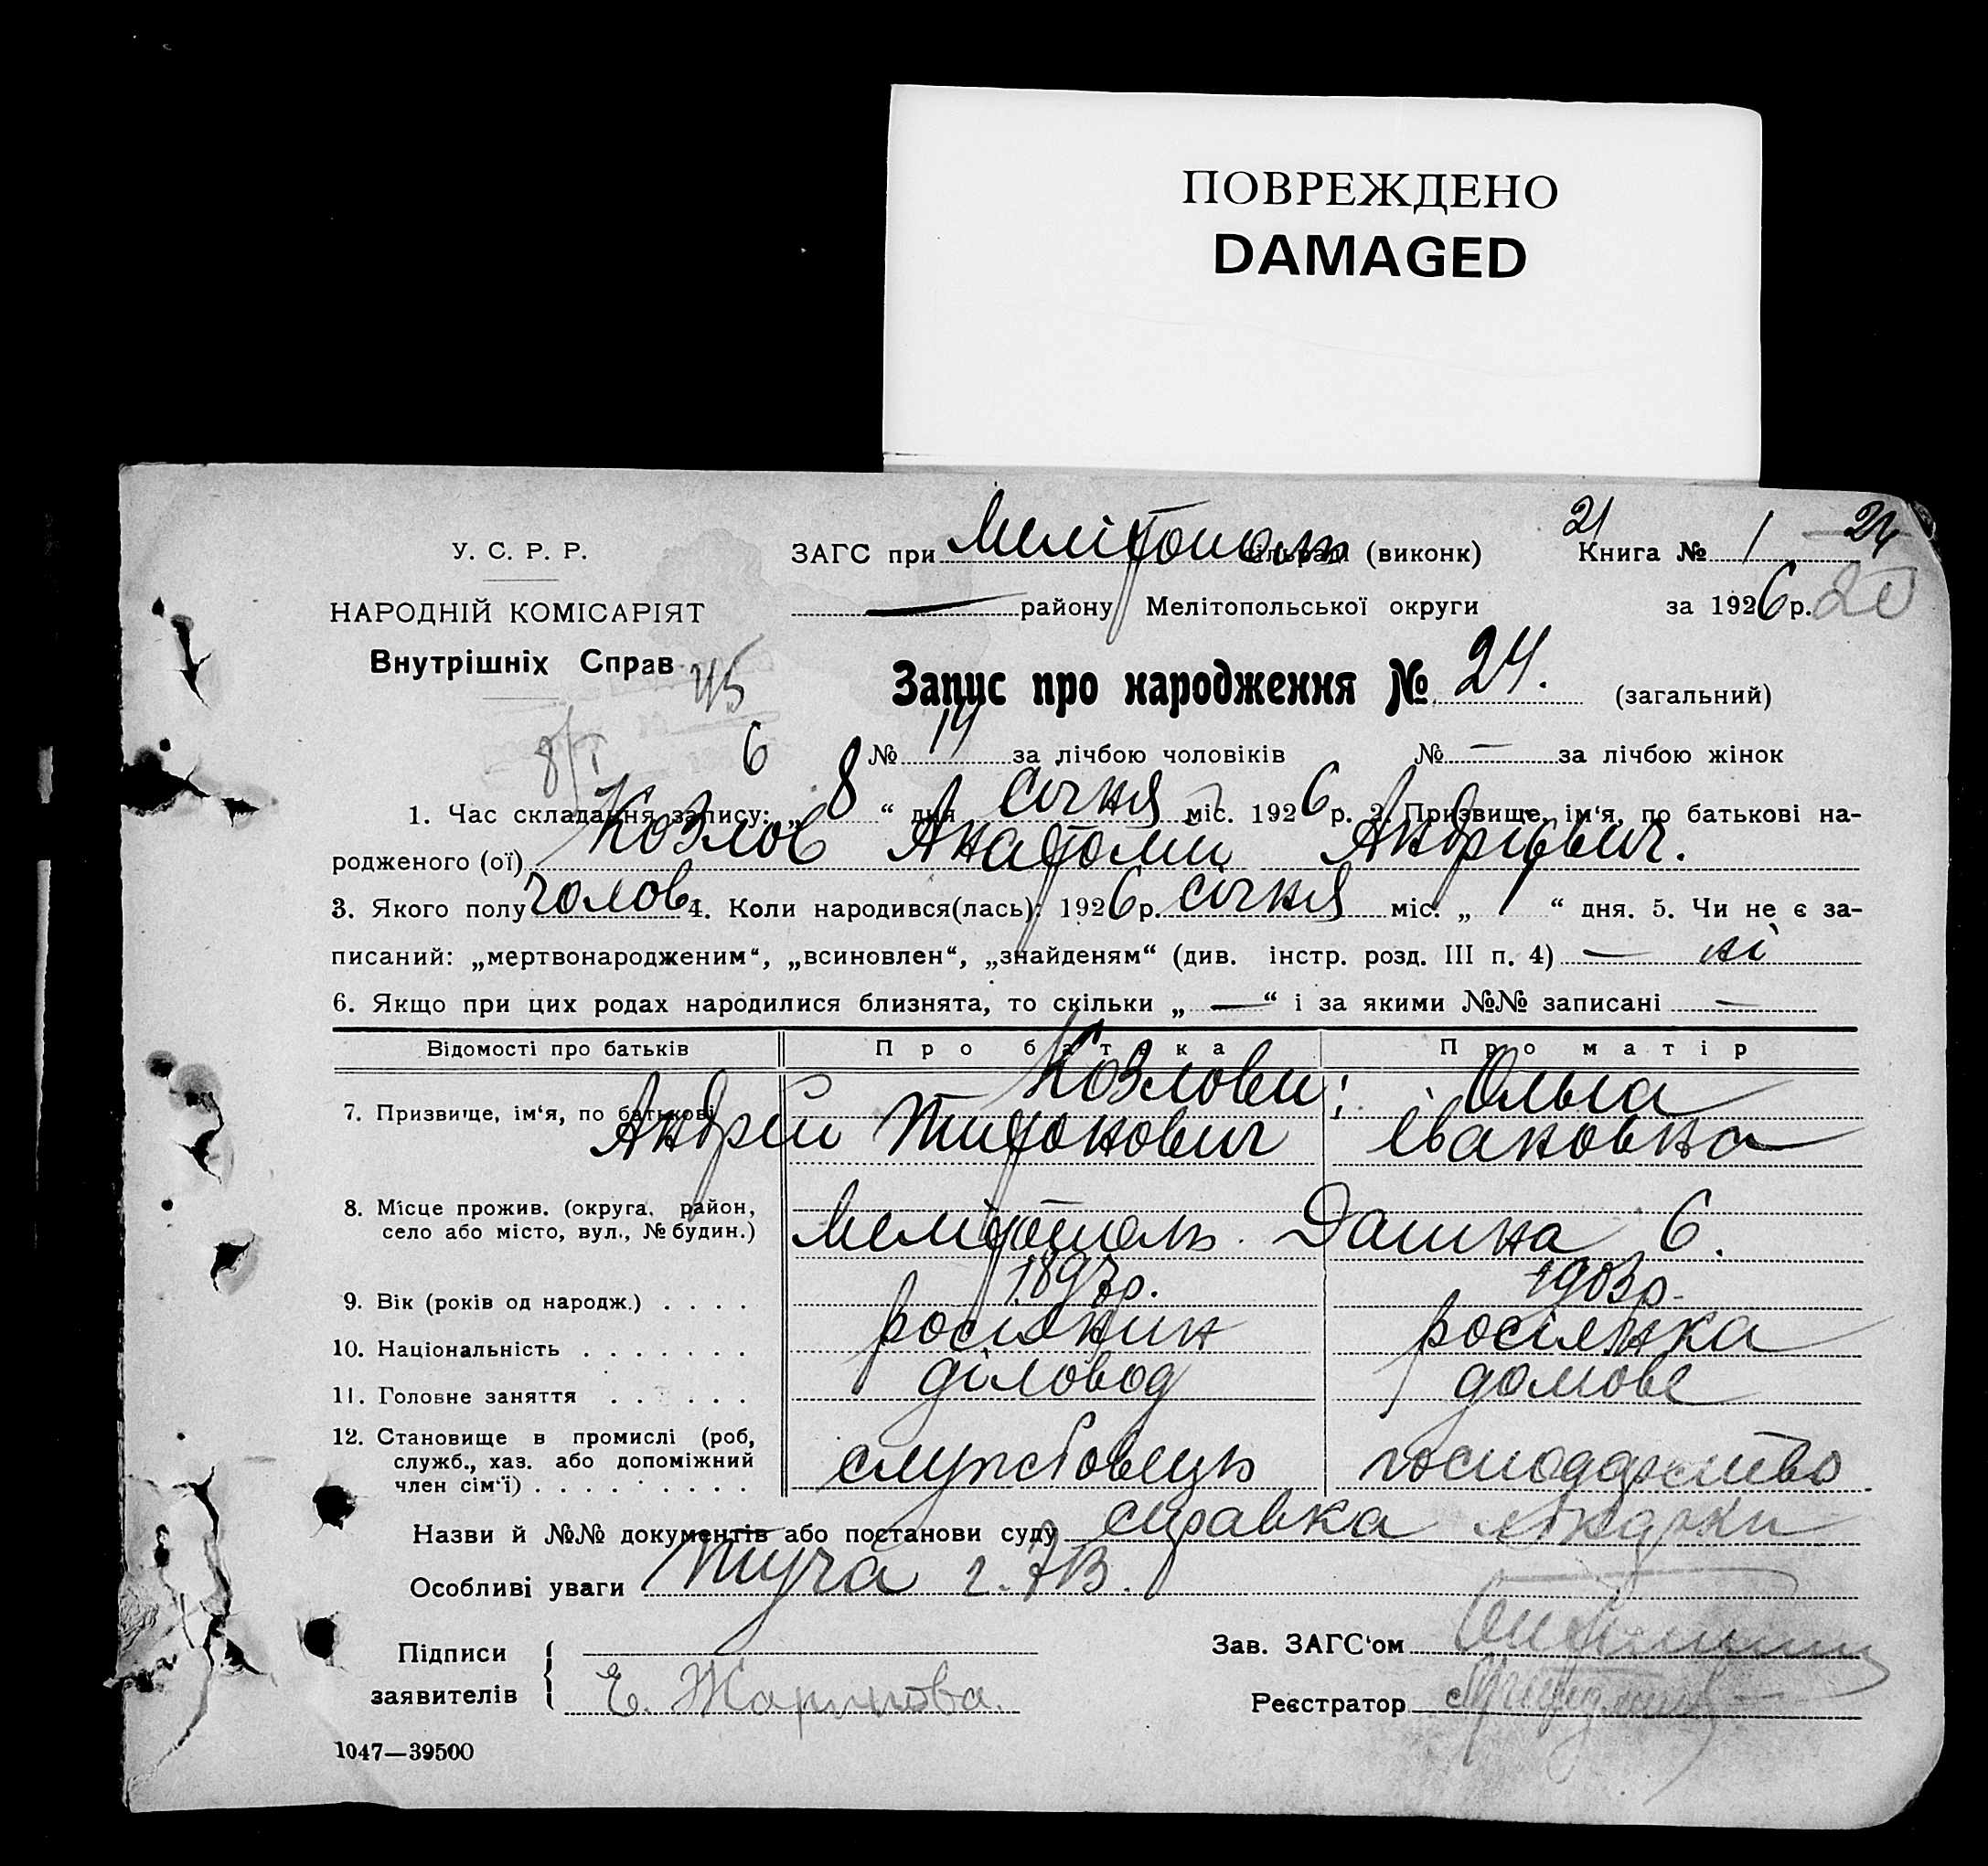 ПОВРЕЖДЕНО
DAMAGED
У. С. Р. Р.
НАРОДНІЙ КОМІСАРІЯТ
Внутрішніх Справ
ЗАГС при Мелітополь сільраді (виконк)
21
Книга № 1 — 24
— району Мелітопольської округи
за 1926 р. 20
Запис про народження № 24. (загальний)
6
№ 14 за лічбою чоловіків № — за лічбою жінок
1. Час складання запису: „ 8 “ дня січня міс. 1926 р. 2. Призвище, ім‘я, по батькові на-
родженого (ої) Козлов Анатолий Андрієвич.
3. Якого полу чолов. 4. Коли народився(лась): 1926 р. січня міс. „ 1 “ дня. 5. Чи не є за-
писаний: „мертвонародженим“, „всиновлен“, „знайденям“ (див. інстр. розд. III п. 4) — ні
6. Якщо при цих родах народилися близнята, то скільки „ — “ і за якими №№ записані —
Відомості про батьків Про батька Про матір
7. Призвище, ім‘я, по батькові Козлови: Ольга
Андрей Тихонович Івановна
8. Місце прожив. (округа, район,
село або місто, вул., № будин.) Мелітополь. Дачна 6.
9. Вік (років од народж.) . . . . 1897р. 1903р.
10. Національність . . . . . . . росіянин росіянка
11. Головне заняття . . . . . . діловод домове
12. Становище в промислі (роб,
служб., хаз. або допоміжний
член сім‘ї) . . . . . . . . . . службовець господарство
Назви й №№ документів або постанови суду справка
Особливі уваги
Підписи
заявителів
Е.
Зав. ЗАГС‘ом
Реєстратор
1047—39500